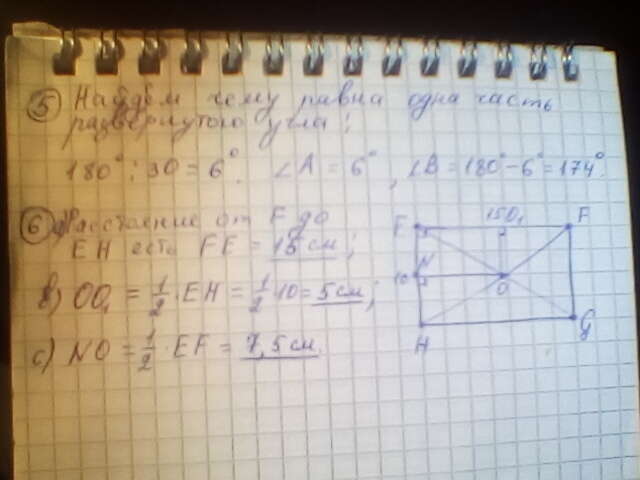 ⑤ Найдём чему равна одна часть
развернутого угла:
180° : 30 = 6°. ∠A = 6°, ∠B = 180° - 6° = 174°.
⑥ a) Расстояние от F до
EH есть FE = 15 см;
b) OO₁ = 1/2 · EH = 1/2 · 10 = 5 см;
c) NO = 1/2 · EF = 7,5 см.
E 15 O₁ F
N
10 O
H G